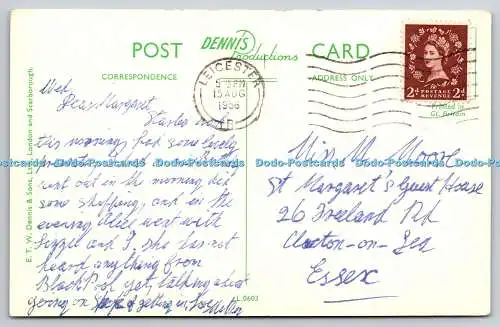 POST CARD
DENNIS
Productions
CORRESPONDENCE
ADDRESS ONLY
LEICESTER
5-PM
15 AUG
1956
2d POSTAGE REVENUE 2d
Printed in
Gt. Britain
E. T. W. Dennis & Sons, Ltd., London and Scarborough.
Wed.
Dear Margaret,
this morning, had some lovely
Dodo-Postcards Dodo-Postcards Dodo-Postcards Dodo-Postcards
went out in the morning did
some shopping, and in the
evening Alec went with
and I. She has not
heard anything from
BlackPool yet, talking about
going on
L.0603
Miss M. Moore
St Margaret's Guest House
26 Freeland Rd
Clacton-on-Sea
Essex